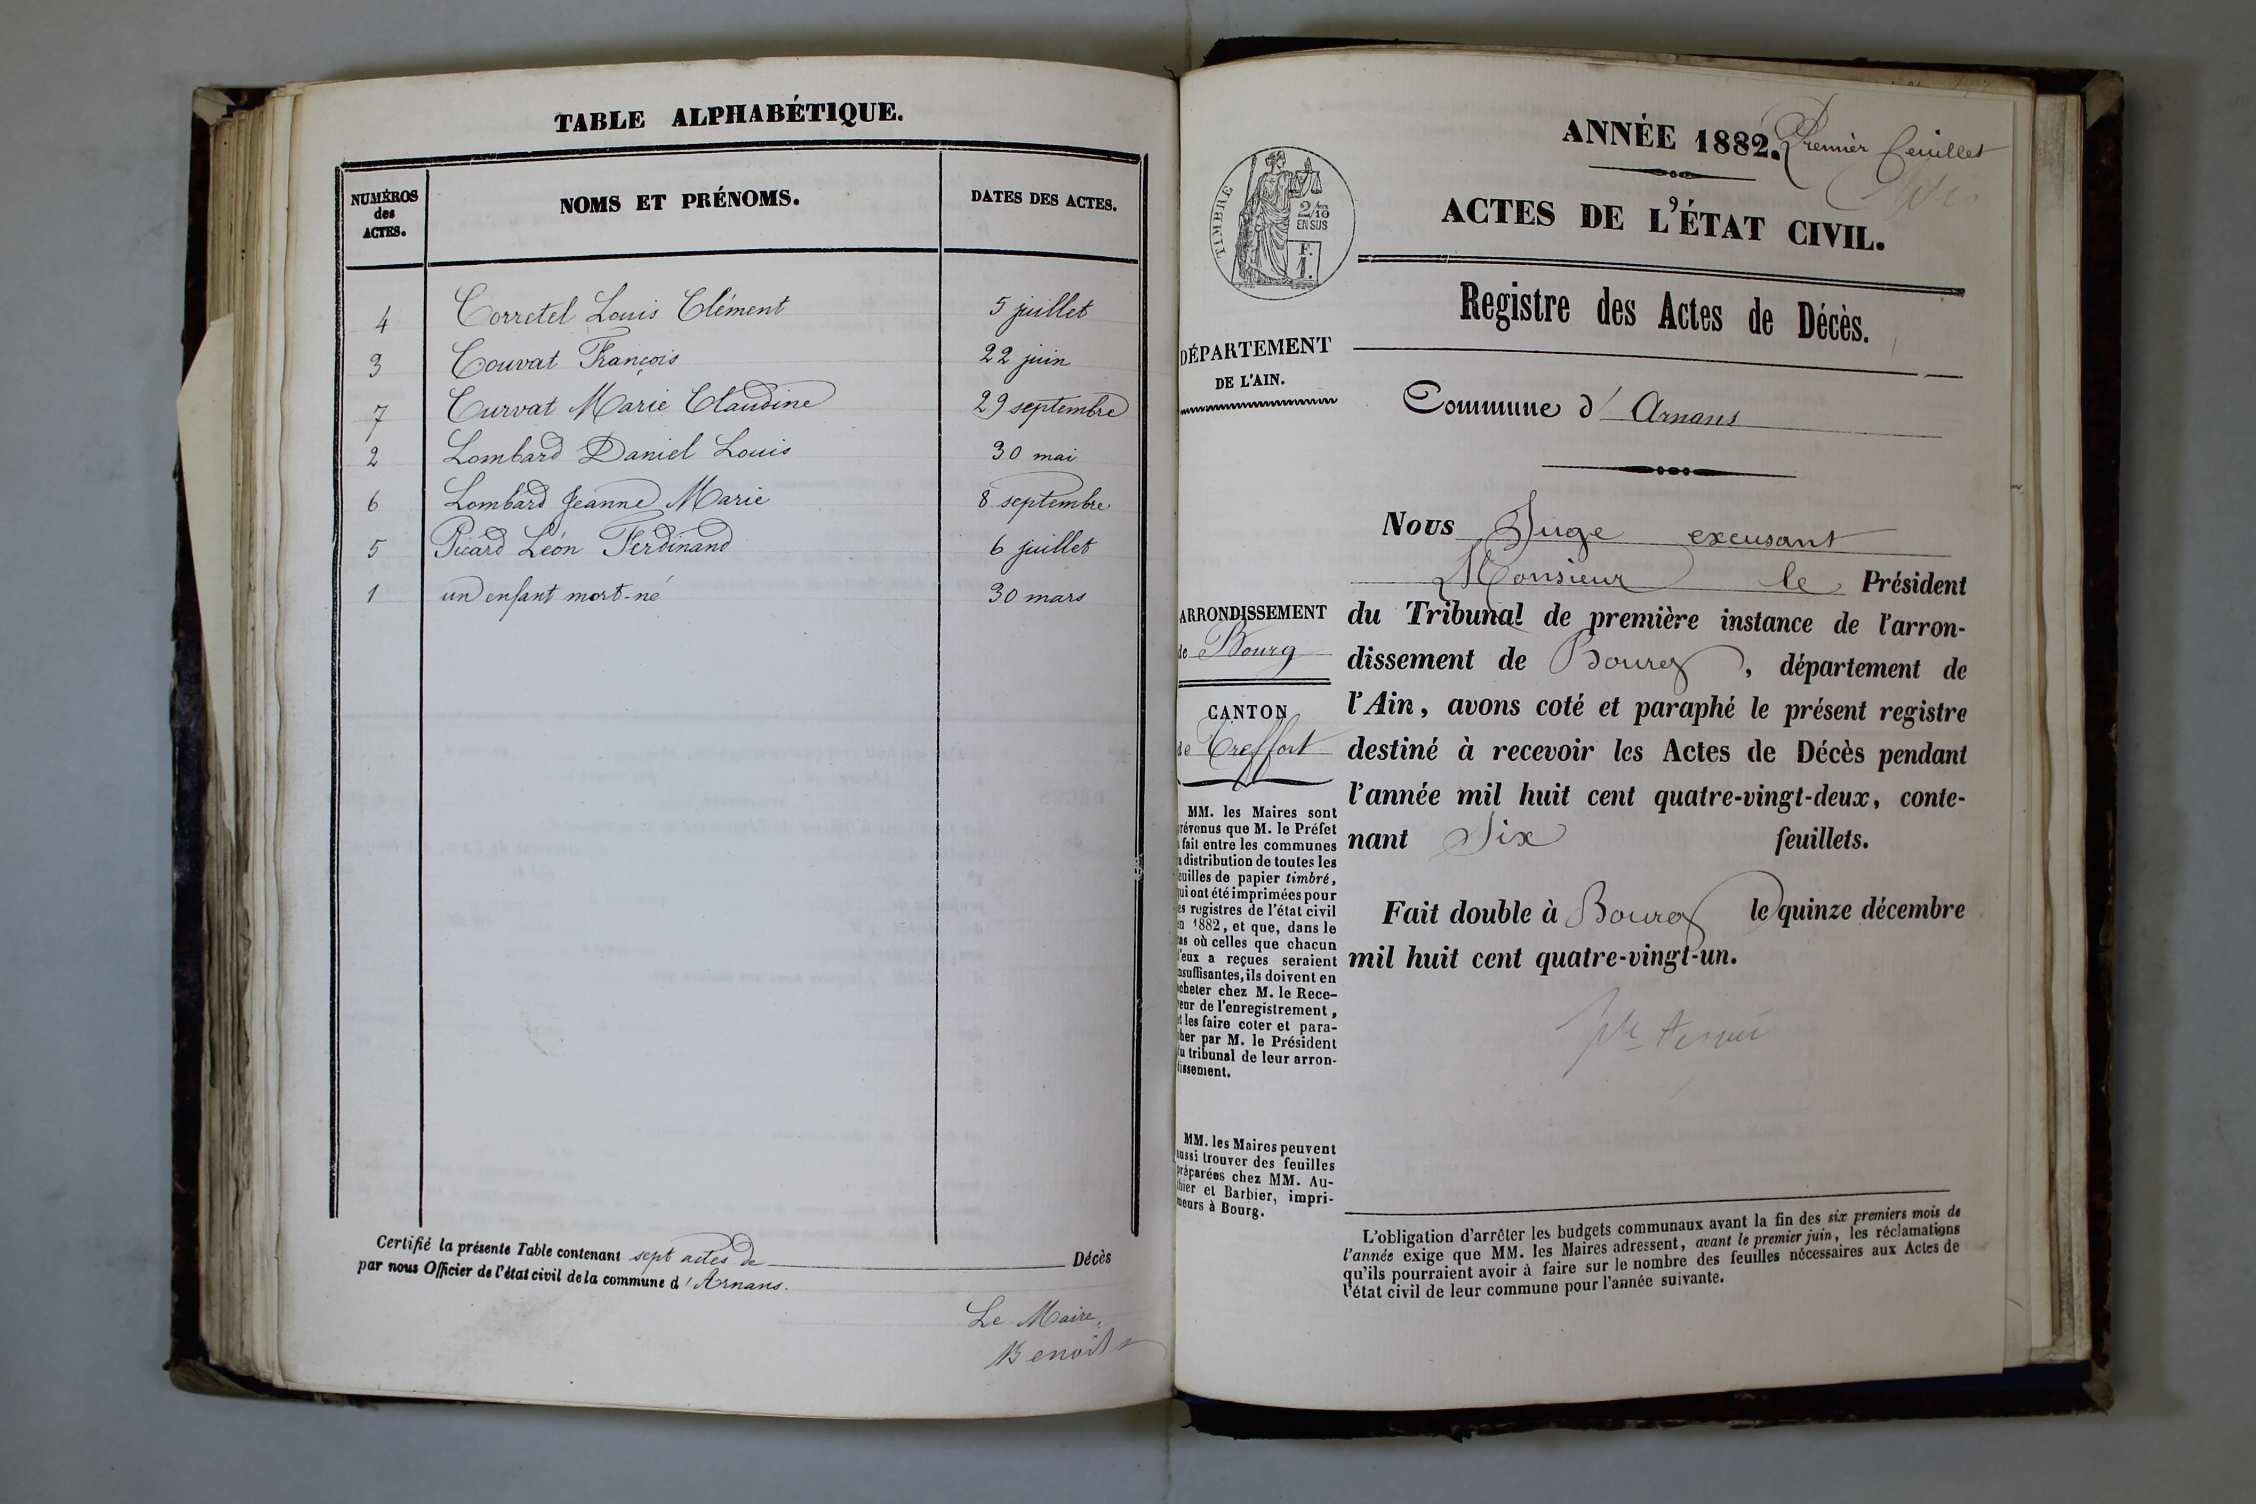 TABLE ALPHABÉTIQUE.
NUMÉROS des ACTES. NOMS ET PRÉNOMS. DATES DES ACTES.
4 Corretel Louis Clément 5 juillet
3 Couvat François 22 juin
7 Curvat Marie Claudine 29 septembre
2 Lombard Daniel Louis 30 mai
6 Lombard Jeanne Marie 8 septembre
5 Picard Léon Ferdinand 6 juillet
1 un enfant mort-né 30 mars
Certifié la présente Table contenant sept actes de Décès
par nous Officier de l'état civil de la commune d'Arnans.
Le Maire,
Benoit
ANNÉE 1882. Premier feuillet
ACTES DE L'ÉTAT CIVIL.
TIMBRE
2/10
EN SUS
F.
1.
Registre des Actes de Décès.
DÉPARTEMENT
DE L'AIN.
Commune d'Arnans
ARRONDISSEMENT
de Bourg
CANTON
de Treffort
MM. les Maires sont
révenus que M. le Préfet
fait entre les communes
distribution de toutes les
euilles de papier timbré,
ui ont été imprimées pour
es registres de l'état civil
n 1882, et que, dans le
as où celles que chacun
'eux a reçues seraient
nsuffisantes, ils doivent en
cheter chez M. le Rece-
eur de l'enregistrement,
t les faire coter et para-
her par M. le Président
u tribunal de leur arron-
issement.
MM. les Maires peuvent
ussi trouver des feuilles
préparées chez MM. Au-
hier et Barbier, impri-
meurs à Bourg.
Nous Juge excusant
Monsieur le Président
du Tribunal de première instance de l'arron-
dissement de Bourg, département de
l'Ain, avons coté et paraphé le présent registre
destiné à recevoir les Actes de Décès pendant
l'année mil huit cent quatre-vingt-deux, conte-
nant Six feuillets.
Fait double à Bourg le quinze décembre
mil huit cent quatre-vingt-un.
L'obligation d'arrêter les budgets communaux avant la fin des six premiers mois de
l'année exige que MM. les Maires adressent, avant le premier juin, les réclamations
qu'ils pourraient avoir à faire sur le nombre des feuilles nécessaires aux Actes de
l'état civil de leur commune pour l'année suivante.